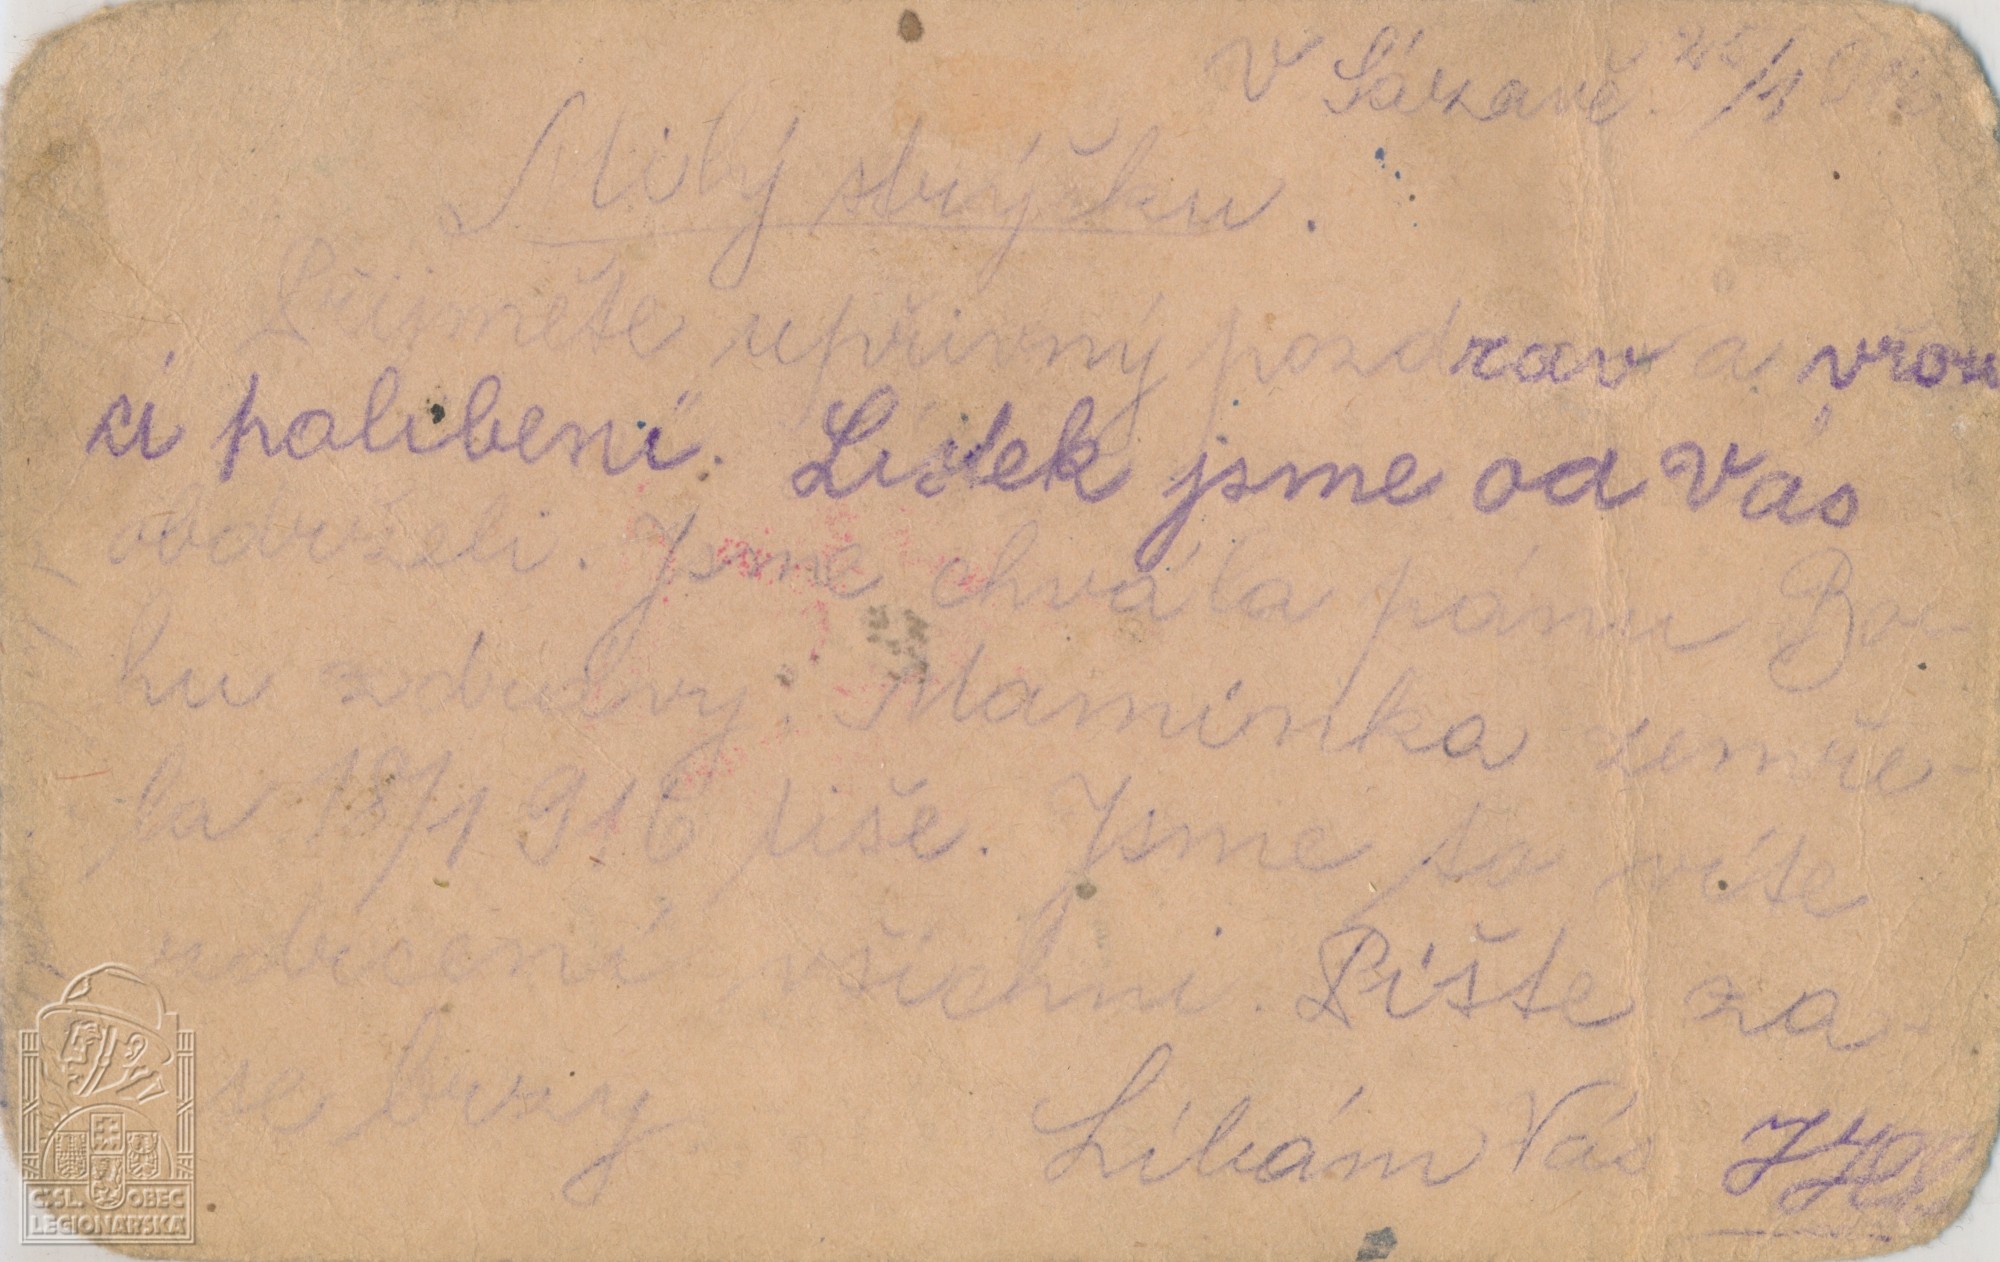 V Sázavě 25/4
Milý strýčku.
Přijměte upřivný pozdrav a vrou
cí políbení. Lístek jsme od Vás
obdrželi. Jsme chvála pánu Bo-
hu zdrávy. Maminka zemře-
la 18/1 916 tiše. Jsme to víte
zdrceni všichni. Pište za-
se brzy
Líbám Vás
ČSL. OBEC
LEGIONÁŘSKÁ